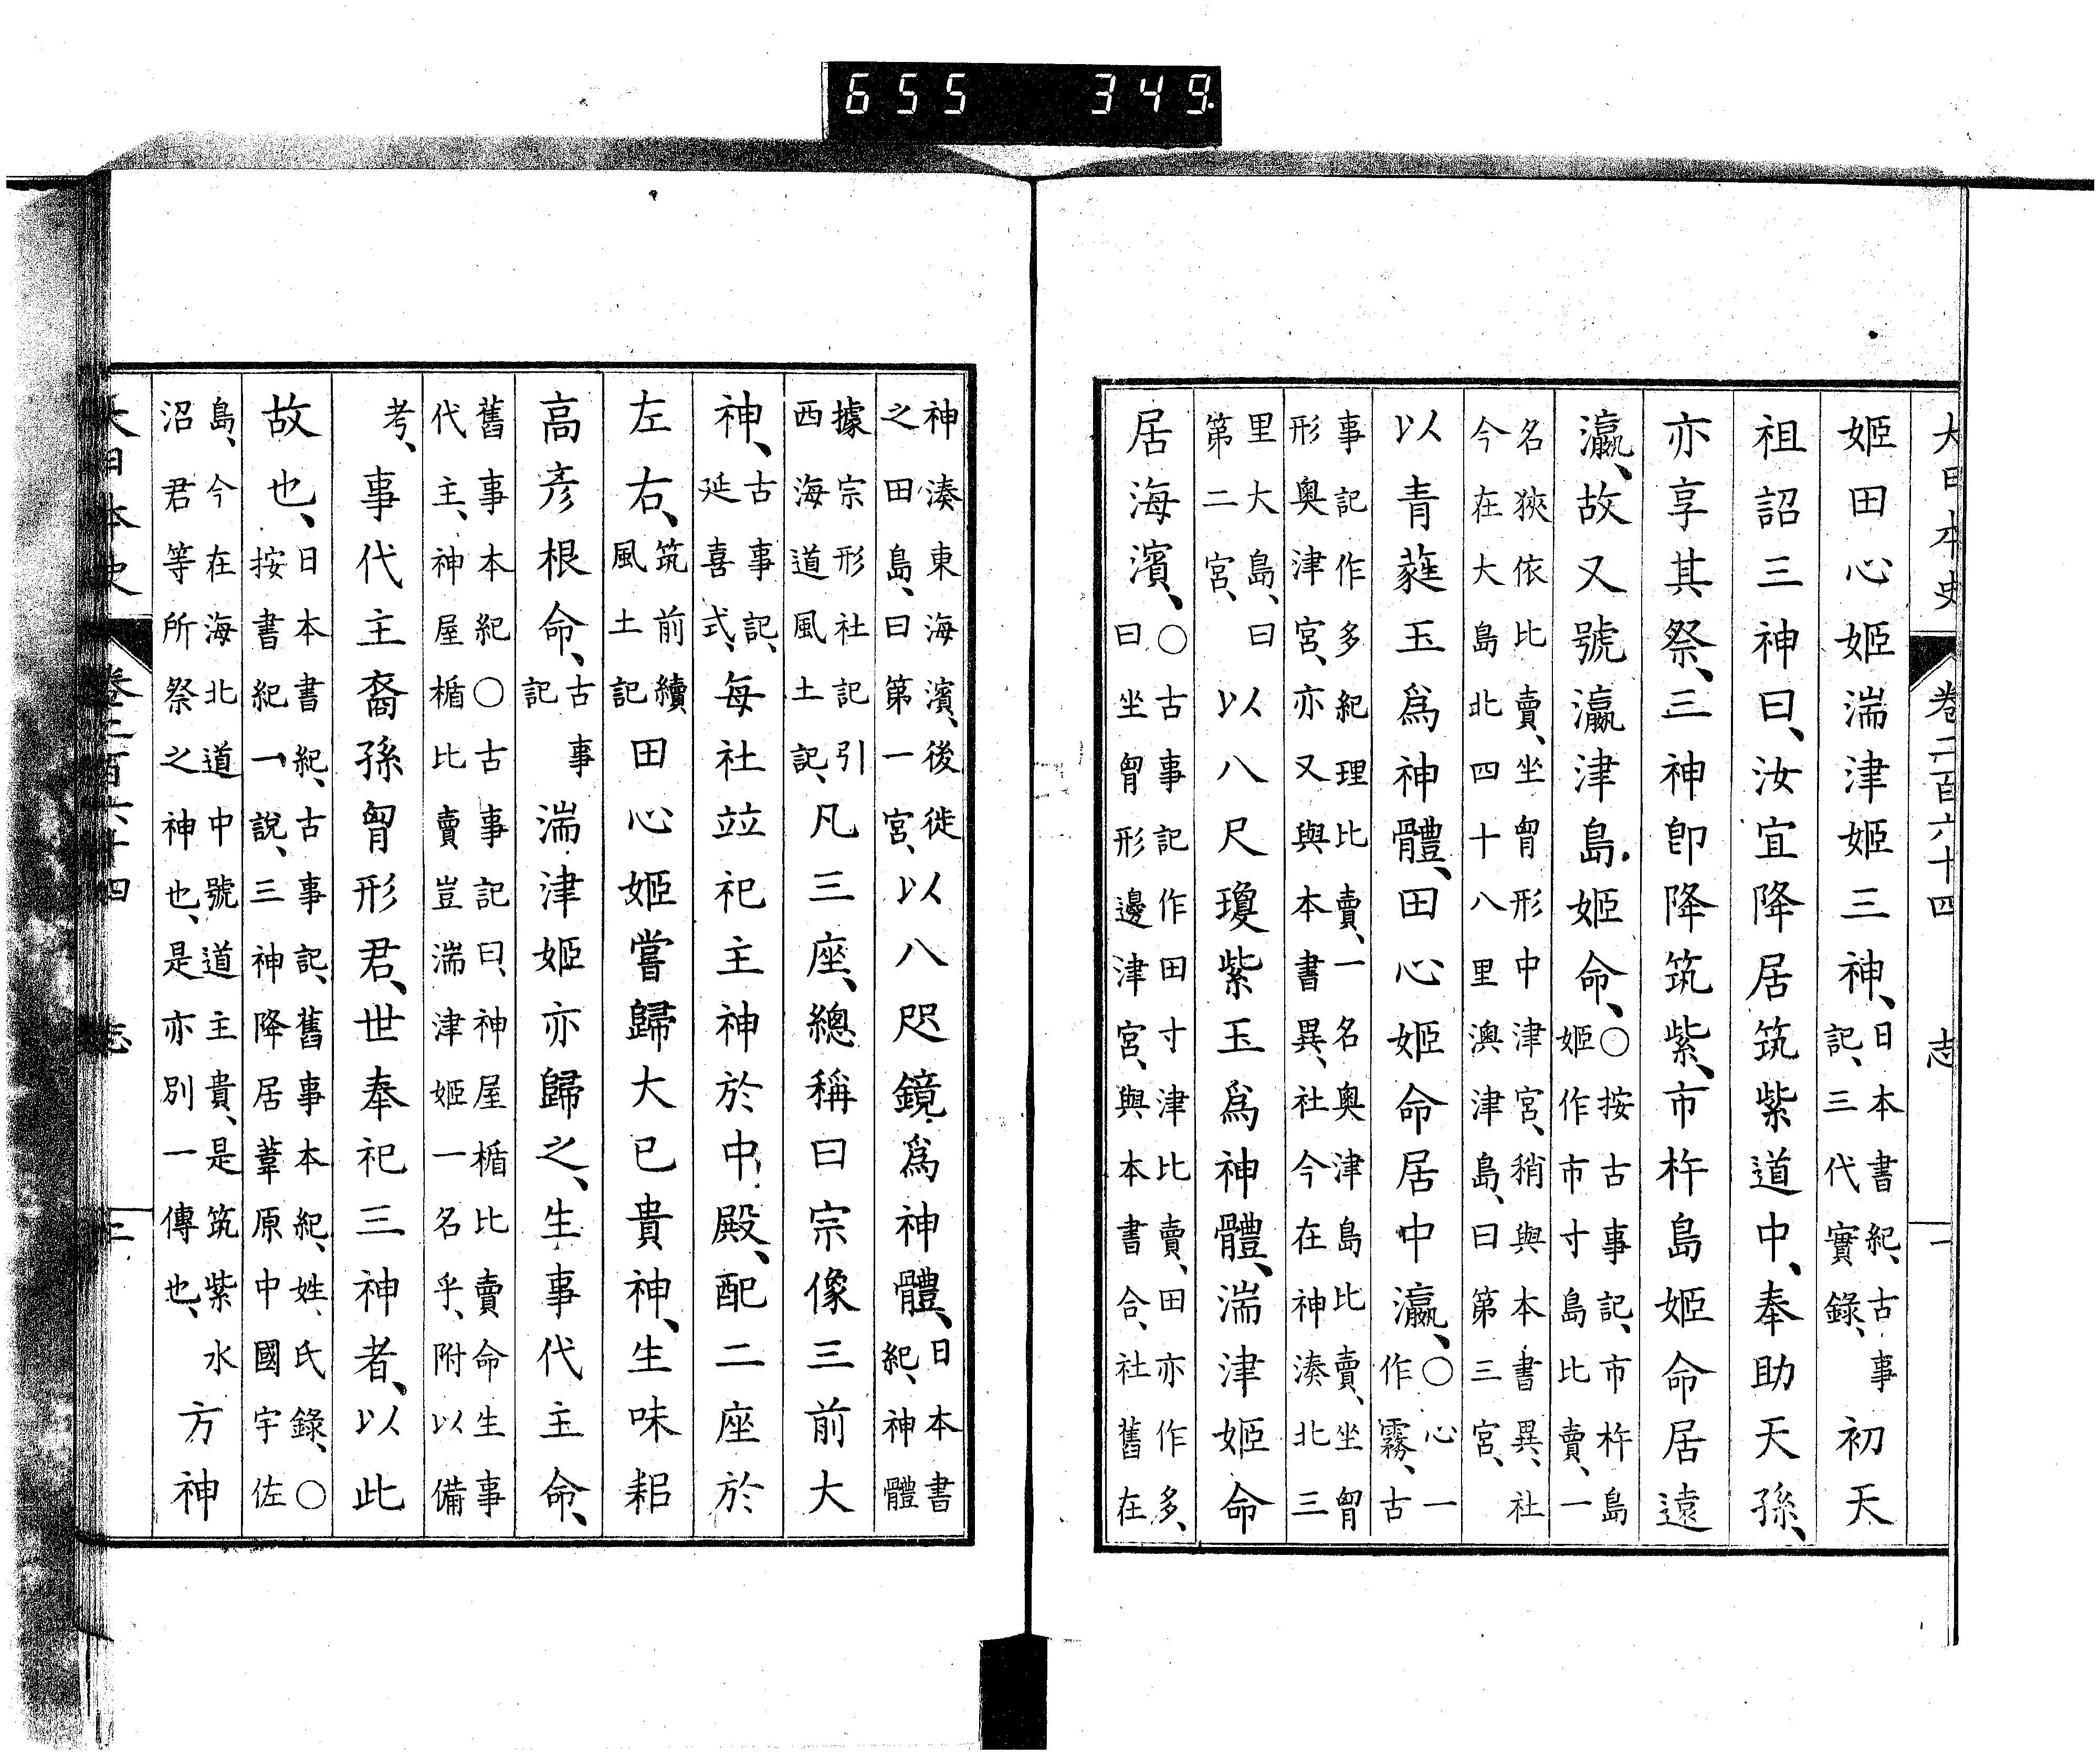 655 349
大日本史 卷二百六十四 志 二
姬田心姬湍津姬三神、日本書紀、古事記、三代實錄、初天
祖詔三神曰、汝宜降居筑紫道中、奉助天孫、
亦享其祭、三神卽降筑紫、市杵島姬命居遠
瀛、故又號瀛津島姬命、○按古事記、市杵島姬作市寸島比賣、一
名狹依比賣、坐胷形中津宮、稍與本書異、社今在大島北四十八里澳津島、曰第三宮、
以青蕤玉爲神體、田心姬命居中瀛、○心一作霧、古
事記作多紀理比賣、一名奧津島比賣、坐胷形奧津宮、亦又與本書異、社今在神湊北三
里大島、曰第二宮、以八尺瓊紫玉爲神體、湍津姬命
居海濱、○古事記作田寸津比賣、田亦作多、曰坐胷形邊津宮、與本書合、社舊在
神湊東海濱、後徙之田島、曰第一宮、以八咫鏡爲神體、日本書紀、神體
據宗形社記引西海道風土記、凡三座、總稱曰宗像三前大
神、古事記、延喜式、每社竝祀主神於中殿、配二座於
左右、筑前續風土記田心姬嘗歸大已貴神、生味耜
高彥根命、古事記湍津姬亦歸之、生事代主命、
舊事本紀○古事記曰、神屋楯比賣命生事代主、神屋楯比賣豈湍津姬一名乎、附以備
考、事代主裔孫胷形君、世奉祀三神者、以此
故也、日本書紀、古事記、舊事本紀、姓氏錄、○按書紀一說、三神降居葦原中國宇佐
島、今在海北道中號道主貴、是筑紫水沼君等所祭之神也、是亦別一傳也、方神
大日本史 卷二百六十四 志 三